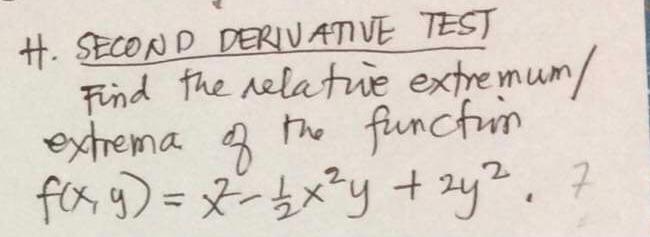 H. SECOND DERIVATIVE TEST
Find the relative extremum/
extrema of the function
f(x, y) = x² - ½x²y + 2y². 7